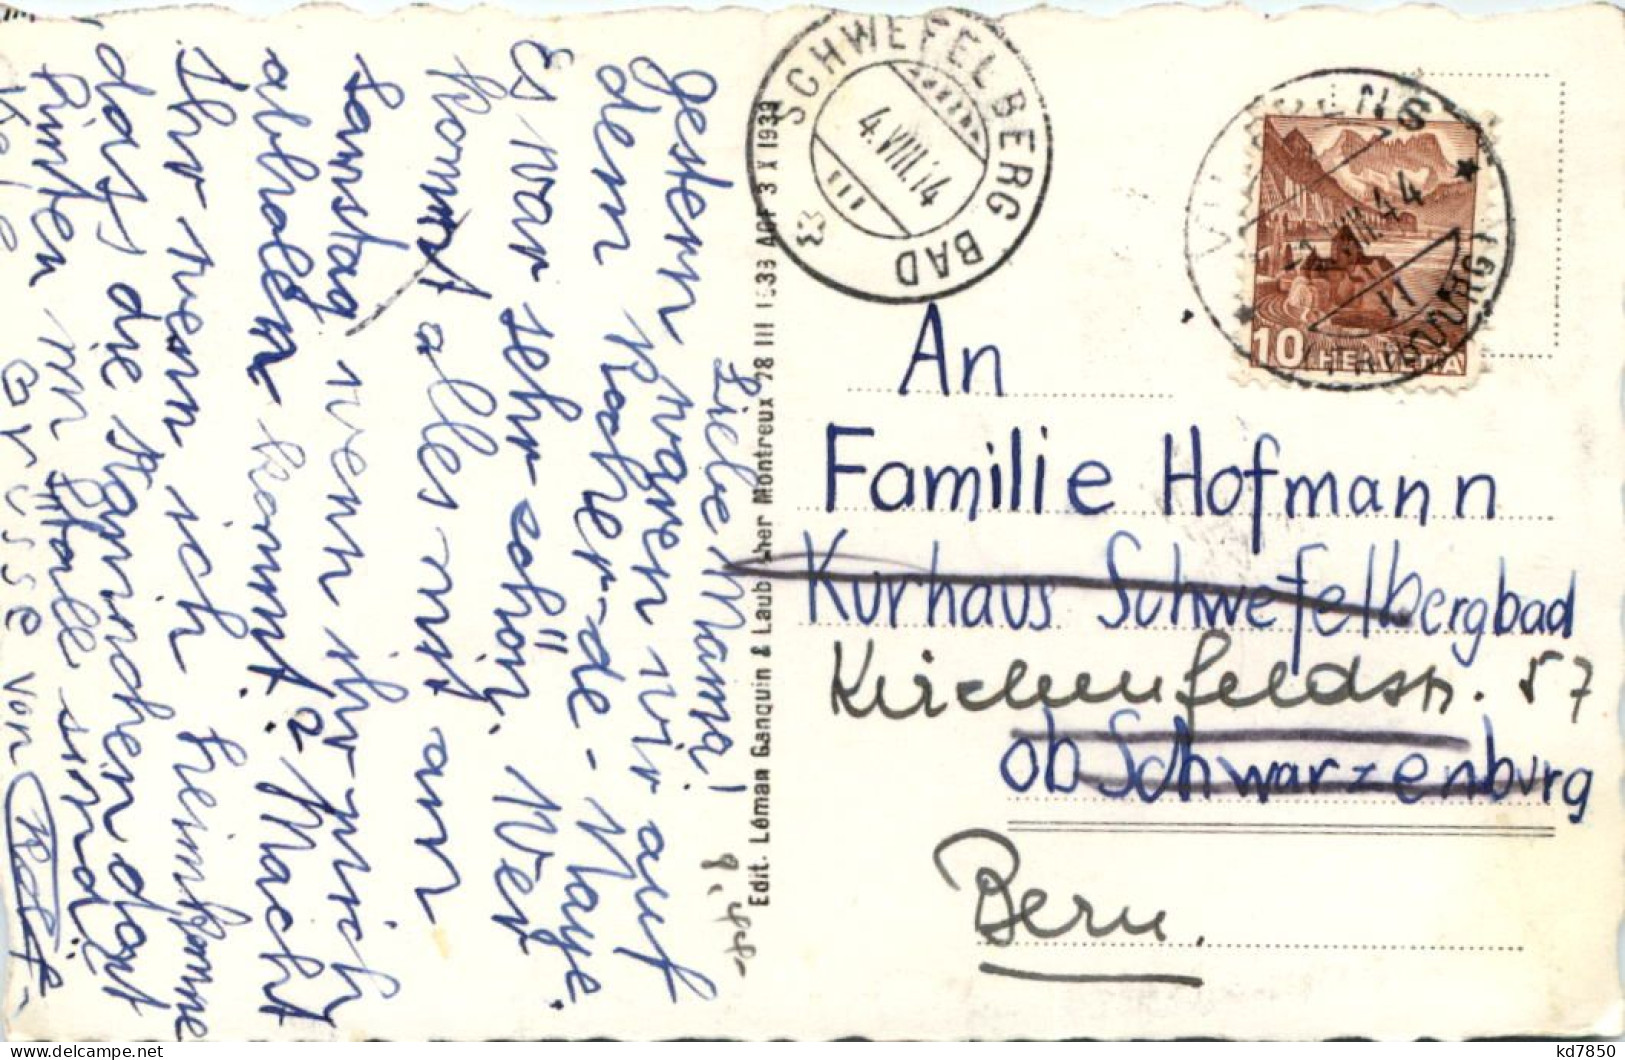 Liebe Mama!
gestern waren wir auf
dem Rocher-de-Naye.
Es war sehr schön. Wer
kommt alles mit am
Samstag wenn ihr mich
abholen kommt? Macht
Ihr wenn ich heimkomme
dass die Kaninchen dort
hinten im Stall sind?
Grüsse von Rolf.
8. 44
Edit. Léman Ganguin & Laubscher Montreux 78 III 1933 AOF 3 X 1933
SCHWEFELBERG BAD
4.VIII.14
VIII.44
11
10
HELVETIA
An
Familie Hofmann
Kurhaus Schwefelbergbad
Kirchenfeldstr. 57
ob Schwarzenburg
Bern.
kd7850